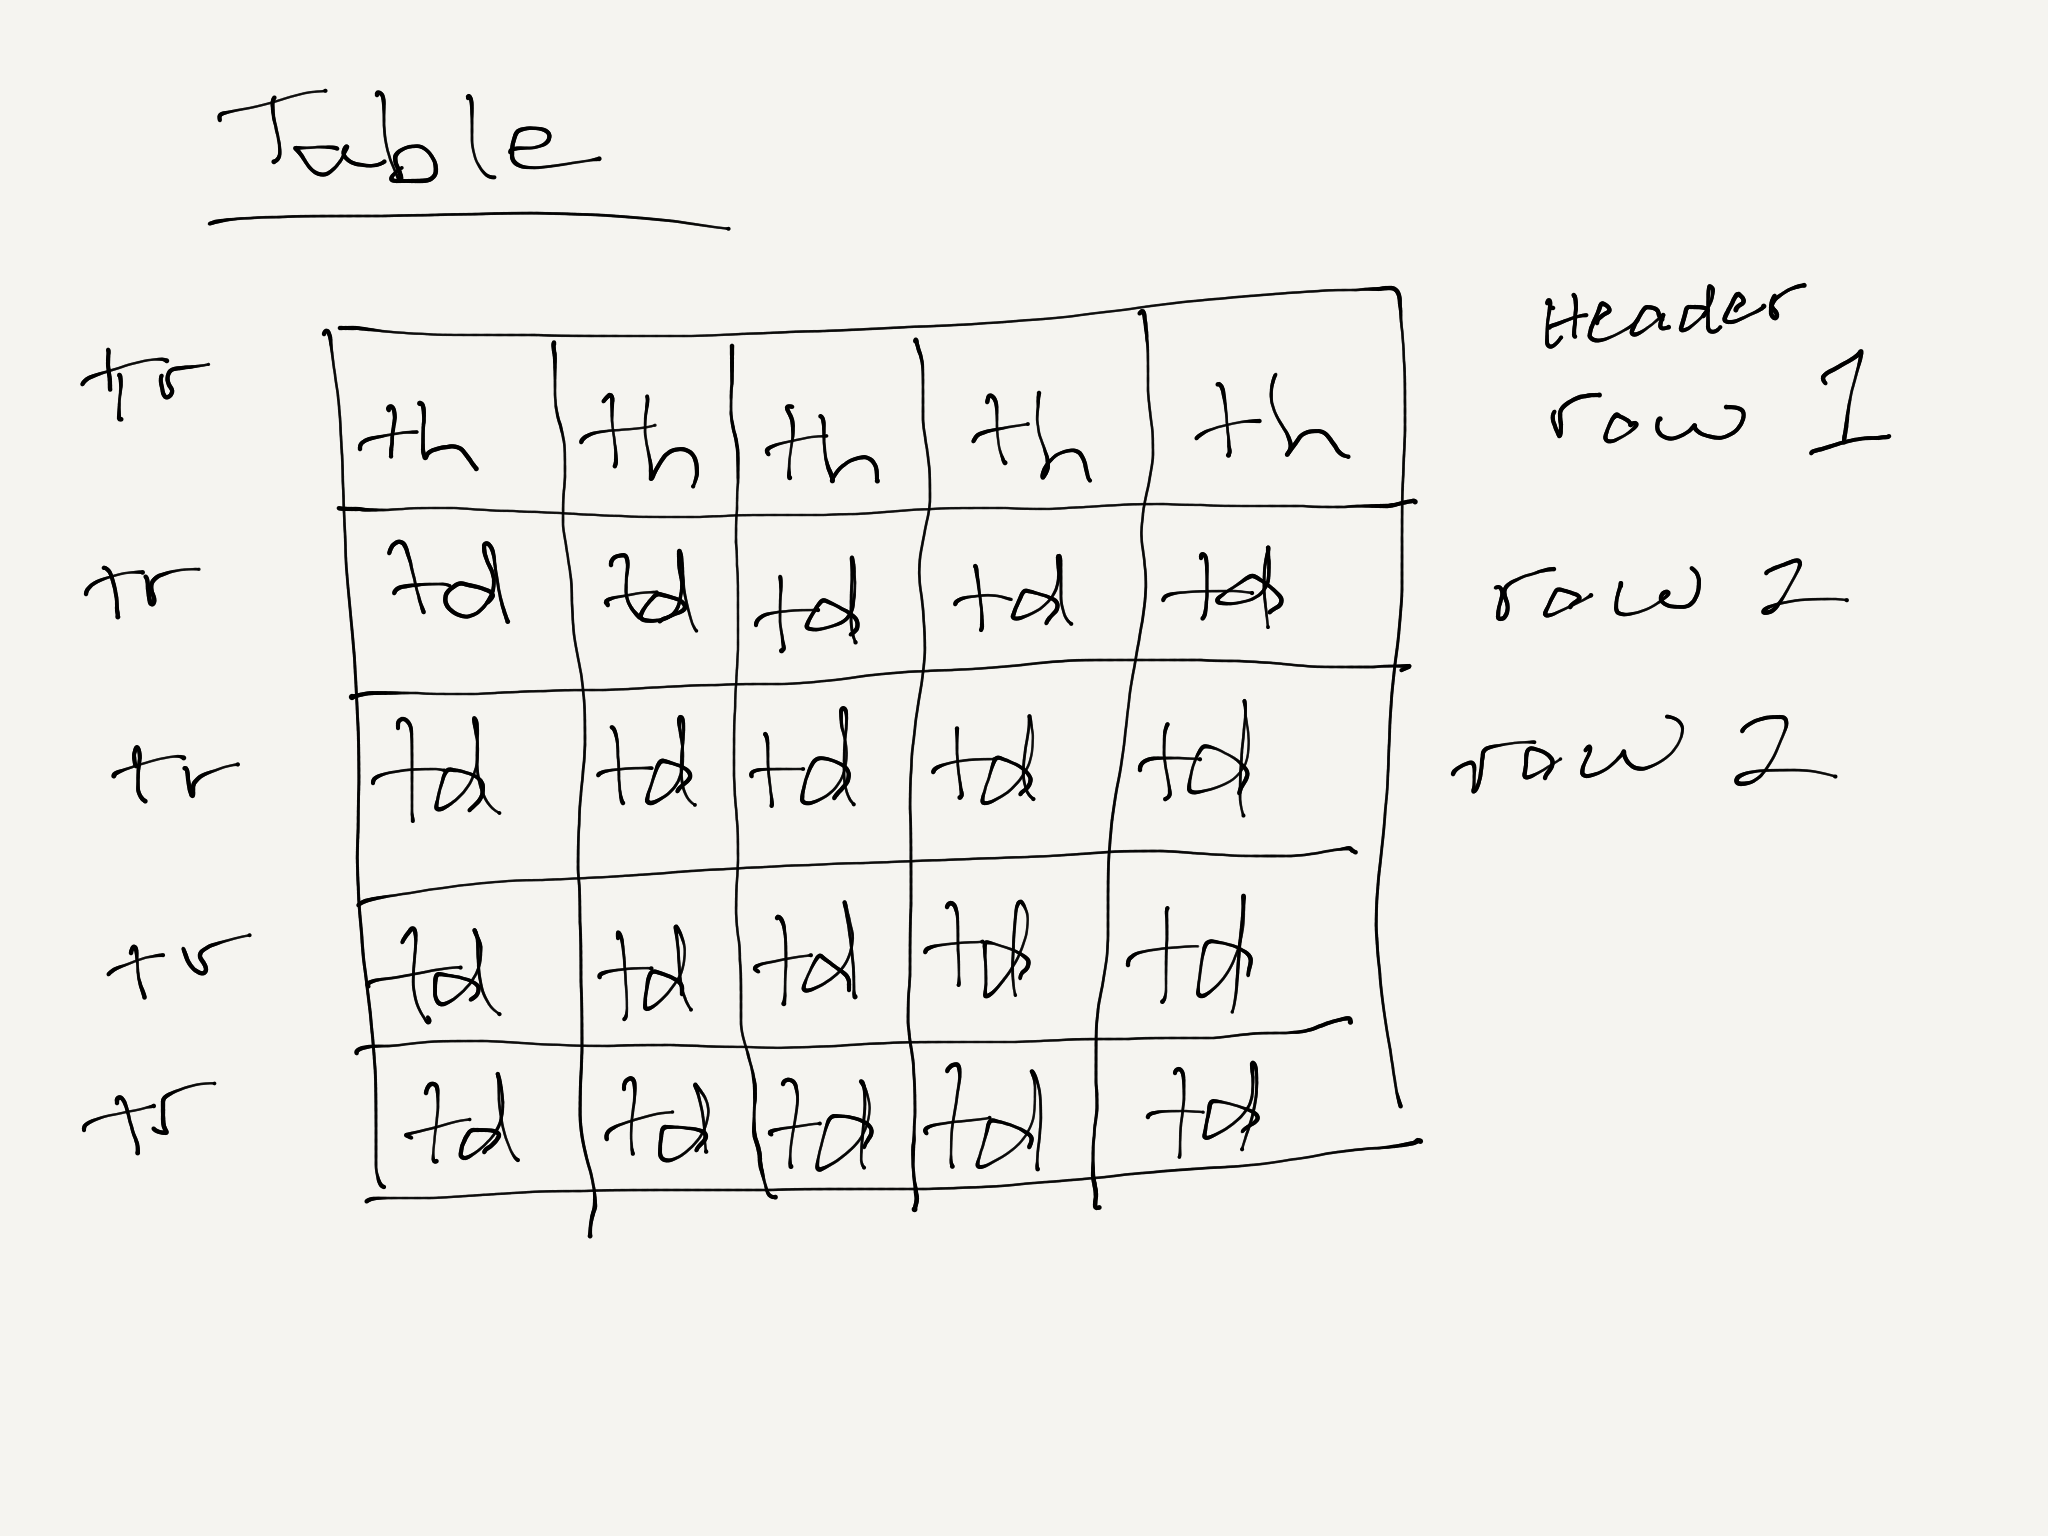 Table
tr th th th th th Header
row 1
tr td td td td td row 2
tr td td td td td row 2
tr td td td td td
tr td td td td td